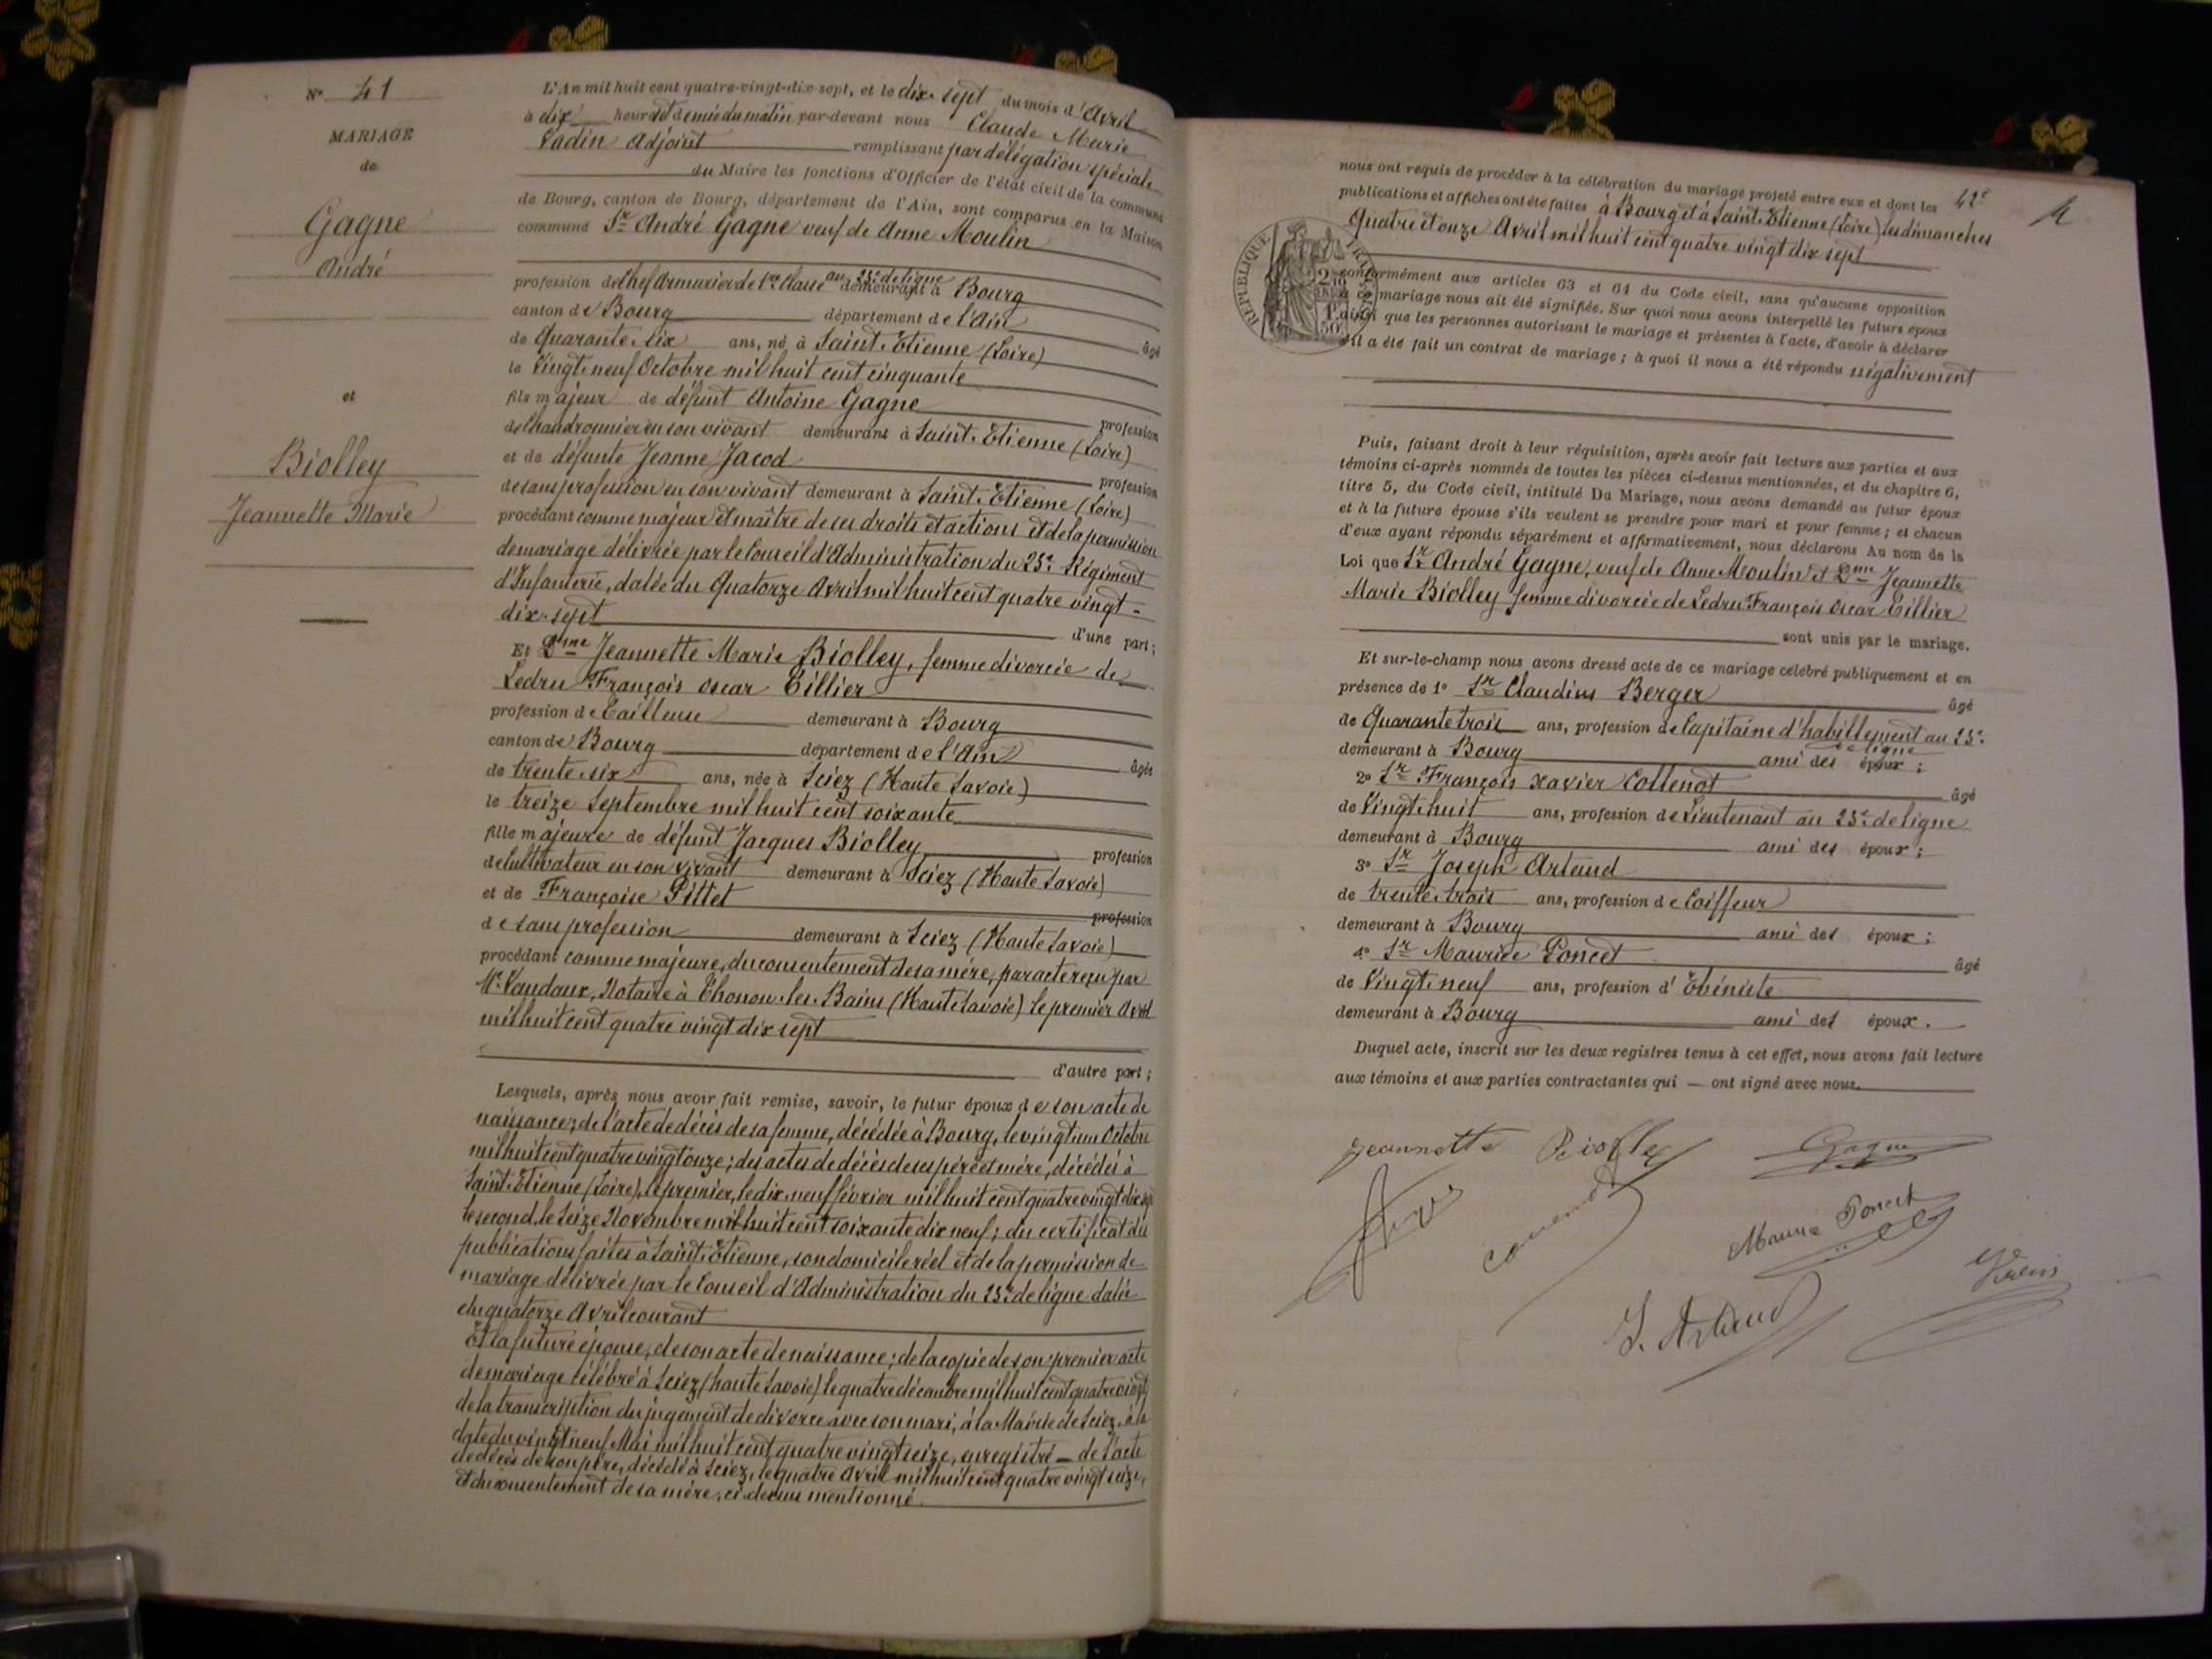 N° 41
MARIAGE
de
Gagne
André
et
Biolley
Jeannette Marie
L'An mil huit cent quatre-vingt-dix-sept, et le dix-sept du mois d'Avril
à dix heures et demie du matin par-devant nous Claude Marie
Vadin Adjoint remplissant par délégation spéciale
du Maire les fonctions d'Officier de l'état civil de la commune
de Bourg, canton de Bourg, département de l'Ain, sont comparus en la Maison
commune Sr André Gagne veuf de Anne Moulin
profession de Chef Armurier de 1re Classe au 23e de ligne demeurant à Bourg
canton de Bourg département de l'Ain âgé
de Quarante six ans, né à Saint-Etienne (Loire)
le Vingt-neuf Octobre mil huit cent cinquante
fils majeur de défunt Antoine Gagne profession
de Chaudronnier en son vivant demeurant à Saint-Etienne (Loire)
et de défunte Jeanne Jacod profession
de sans profession en son vivant demeurant à Saint-Etienne (Loire)
procédant comme majeur et maître de ses droits et actions et de la permission
de mariage délivrée par le Conseil d'Administration du 23e Régiment
d'Infanterie, datée du Quatorze Avril mil huit cent quatre vingt-
dix-sept d'une part;
Et Dme Jeannette Marie Biolley, femme divorcée de
Ledru François Oscar Tillier
profession de Tailleuse demeurant à Bourg
canton de Bourg département de l'Ain âgée
de trente-six ans, née à Sciez (Haute Savoie)
le treize Septembre mil huit cent soixante
fille majeure de défunt Jacques Biolley profession
de Cultivateur en son vivant demeurant à Sciez (Haute Savoie)
et de Françoise Pittet profession
de sans profession demeurant à Sciez (Haute Savoie)
procédant comme majeure, du consentement de sa mère, par acte reçu par
Me Vaudaux, Notaire à Thonon-les-Bains (Haute Savoie) le premier Avril
mil huit cent quatre vingt dix sept
d'autre part;
Lesquels, après nous avoir fait remise, savoir, le futur époux de son acte de
naissance; de l'acte de décès de sa femme, décédée à Bourg, le vingt un Octobre
mil huit cent quatre vingt onze; des actes de décès de ses père et mère, décédés à
Saint-Etienne (Loire), le premier, le dix-neuf février mil huit cent quatre vingt dix sept
le second, le Seize Novembre mil huit cent soixante dix neuf; du certificat des
publications faites à Saint-Etienne, son domicile réel et de la permission de
mariage délivrée par le Conseil d'Administration du 23e de ligne datée
du quatorze Avril courant
Et la future épouse, de son acte de naissance; de la copie de son premier acte
de mariage célébré à Sciez (haute Savoie) le quatre décembre mil huit cent quatre vingt
de la transcription du jugement de divorce avec son mari, à la Mairie de Sciez, à la
date du vingt neuf Mai mil huit cent quatre vingt seize, enregistré — de l'acte
de décès de son père, décédé à Sciez, le quatre Avril mil huit cent quatre vingt seize,
et du consentement de sa mère, ci-dessus mentionné
42e
nous ont requis de procéder à la célébration du mariage projeté entre eux et dont les
publications et affiches ont été faites à Bourg et à Saint-Etienne (Loire) les dimanches
Quatre et onze Avril mil huit cent quatre vingt dix sept
REPUBLIQUE FRA
conformément aux articles 63 et 64 du Code civil, sans qu'aucune opposition
à ce mariage nous ait été signifiée. Sur quoi nous avons interpellé les futurs époux
ainsi que les personnes autorisant le mariage et présentes à l'acte, d'avoir à déclarer
s'il a été fait un contrat de mariage; à quoi il nous a été répondu négativement
Puis, faisant droit à leur réquisition, après avoir fait lecture aux parties et aux
témoins ci-après nommés de toutes les pièces ci-dessus mentionnées, et du chapitre 6,
titre 5, du Code civil, intitulé Du Mariage, nous avons demandé au futur époux
et à la future épouse s'ils veulent se prendre pour mari et pour femme; et chacun
d'eux ayant répondu séparément et affirmativement, nous déclarons Au nom de la
Loi que Sr André Gagne, veuf de Anne Moulin et Dme Jeannette
Marie Biolley femme divorcée de Ledru François Oscar Tillier
sont unis par le mariage.
Et sur-le-champ nous avons dressé acte de ce mariage célébré publiquement et en
présence de 1° Sr Claudius Berger âgé
de Quarante trois ans, profession de Capitaine d'habillement au 23e
de ligne
demeurant à Bourg ami des époux;
2° Sr François Xavier Collenot âgé
de Vingt huit ans, profession de Lieutenant au 23e de ligne
demeurant à Bourg ami des époux;
3° Sr Joseph Artaud
de trente-trois ans, profession de Coiffeur
demeurant à Bourg ami des époux;
4° Sr Maurice Poncet âgé
de Vingt-neuf ans, profession d'Ebéniste
demeurant à Bourg ami des époux.
Duquel acte, inscrit sur les deux registres tenus à cet effet, nous avons fait lecture
aux témoins et aux parties contractantes qui — ont signé avec nous.
Jeannette Biolley Gagne
Maurice Poncet
J. Artaud